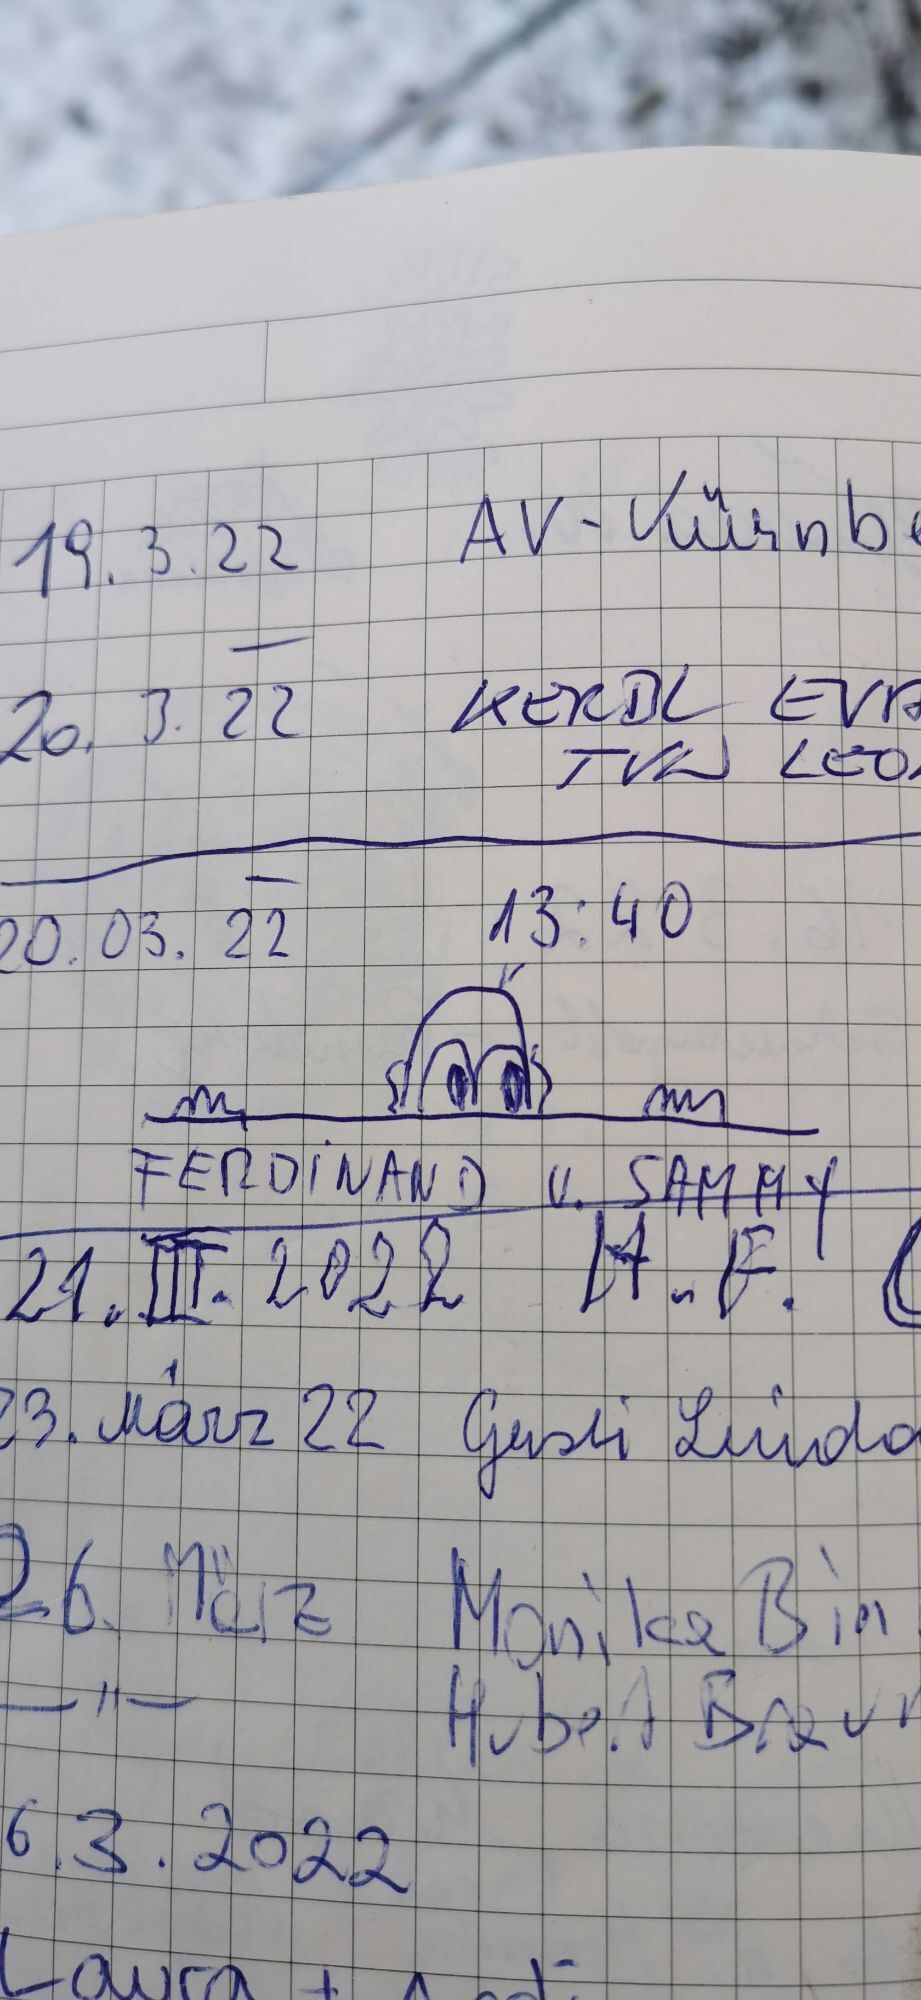 19.3.22 AV-Nürnbe
20. 3. 22 KERBL EVA
TVN LEO
20.03.22 13:40
FERDINAND u. SAMMY
21.III.2022 H.F.
23. März 22 Gusti Linda
26. März Monika Bin
—"— Hubert Braun
6.3.2022
Laura + Andi